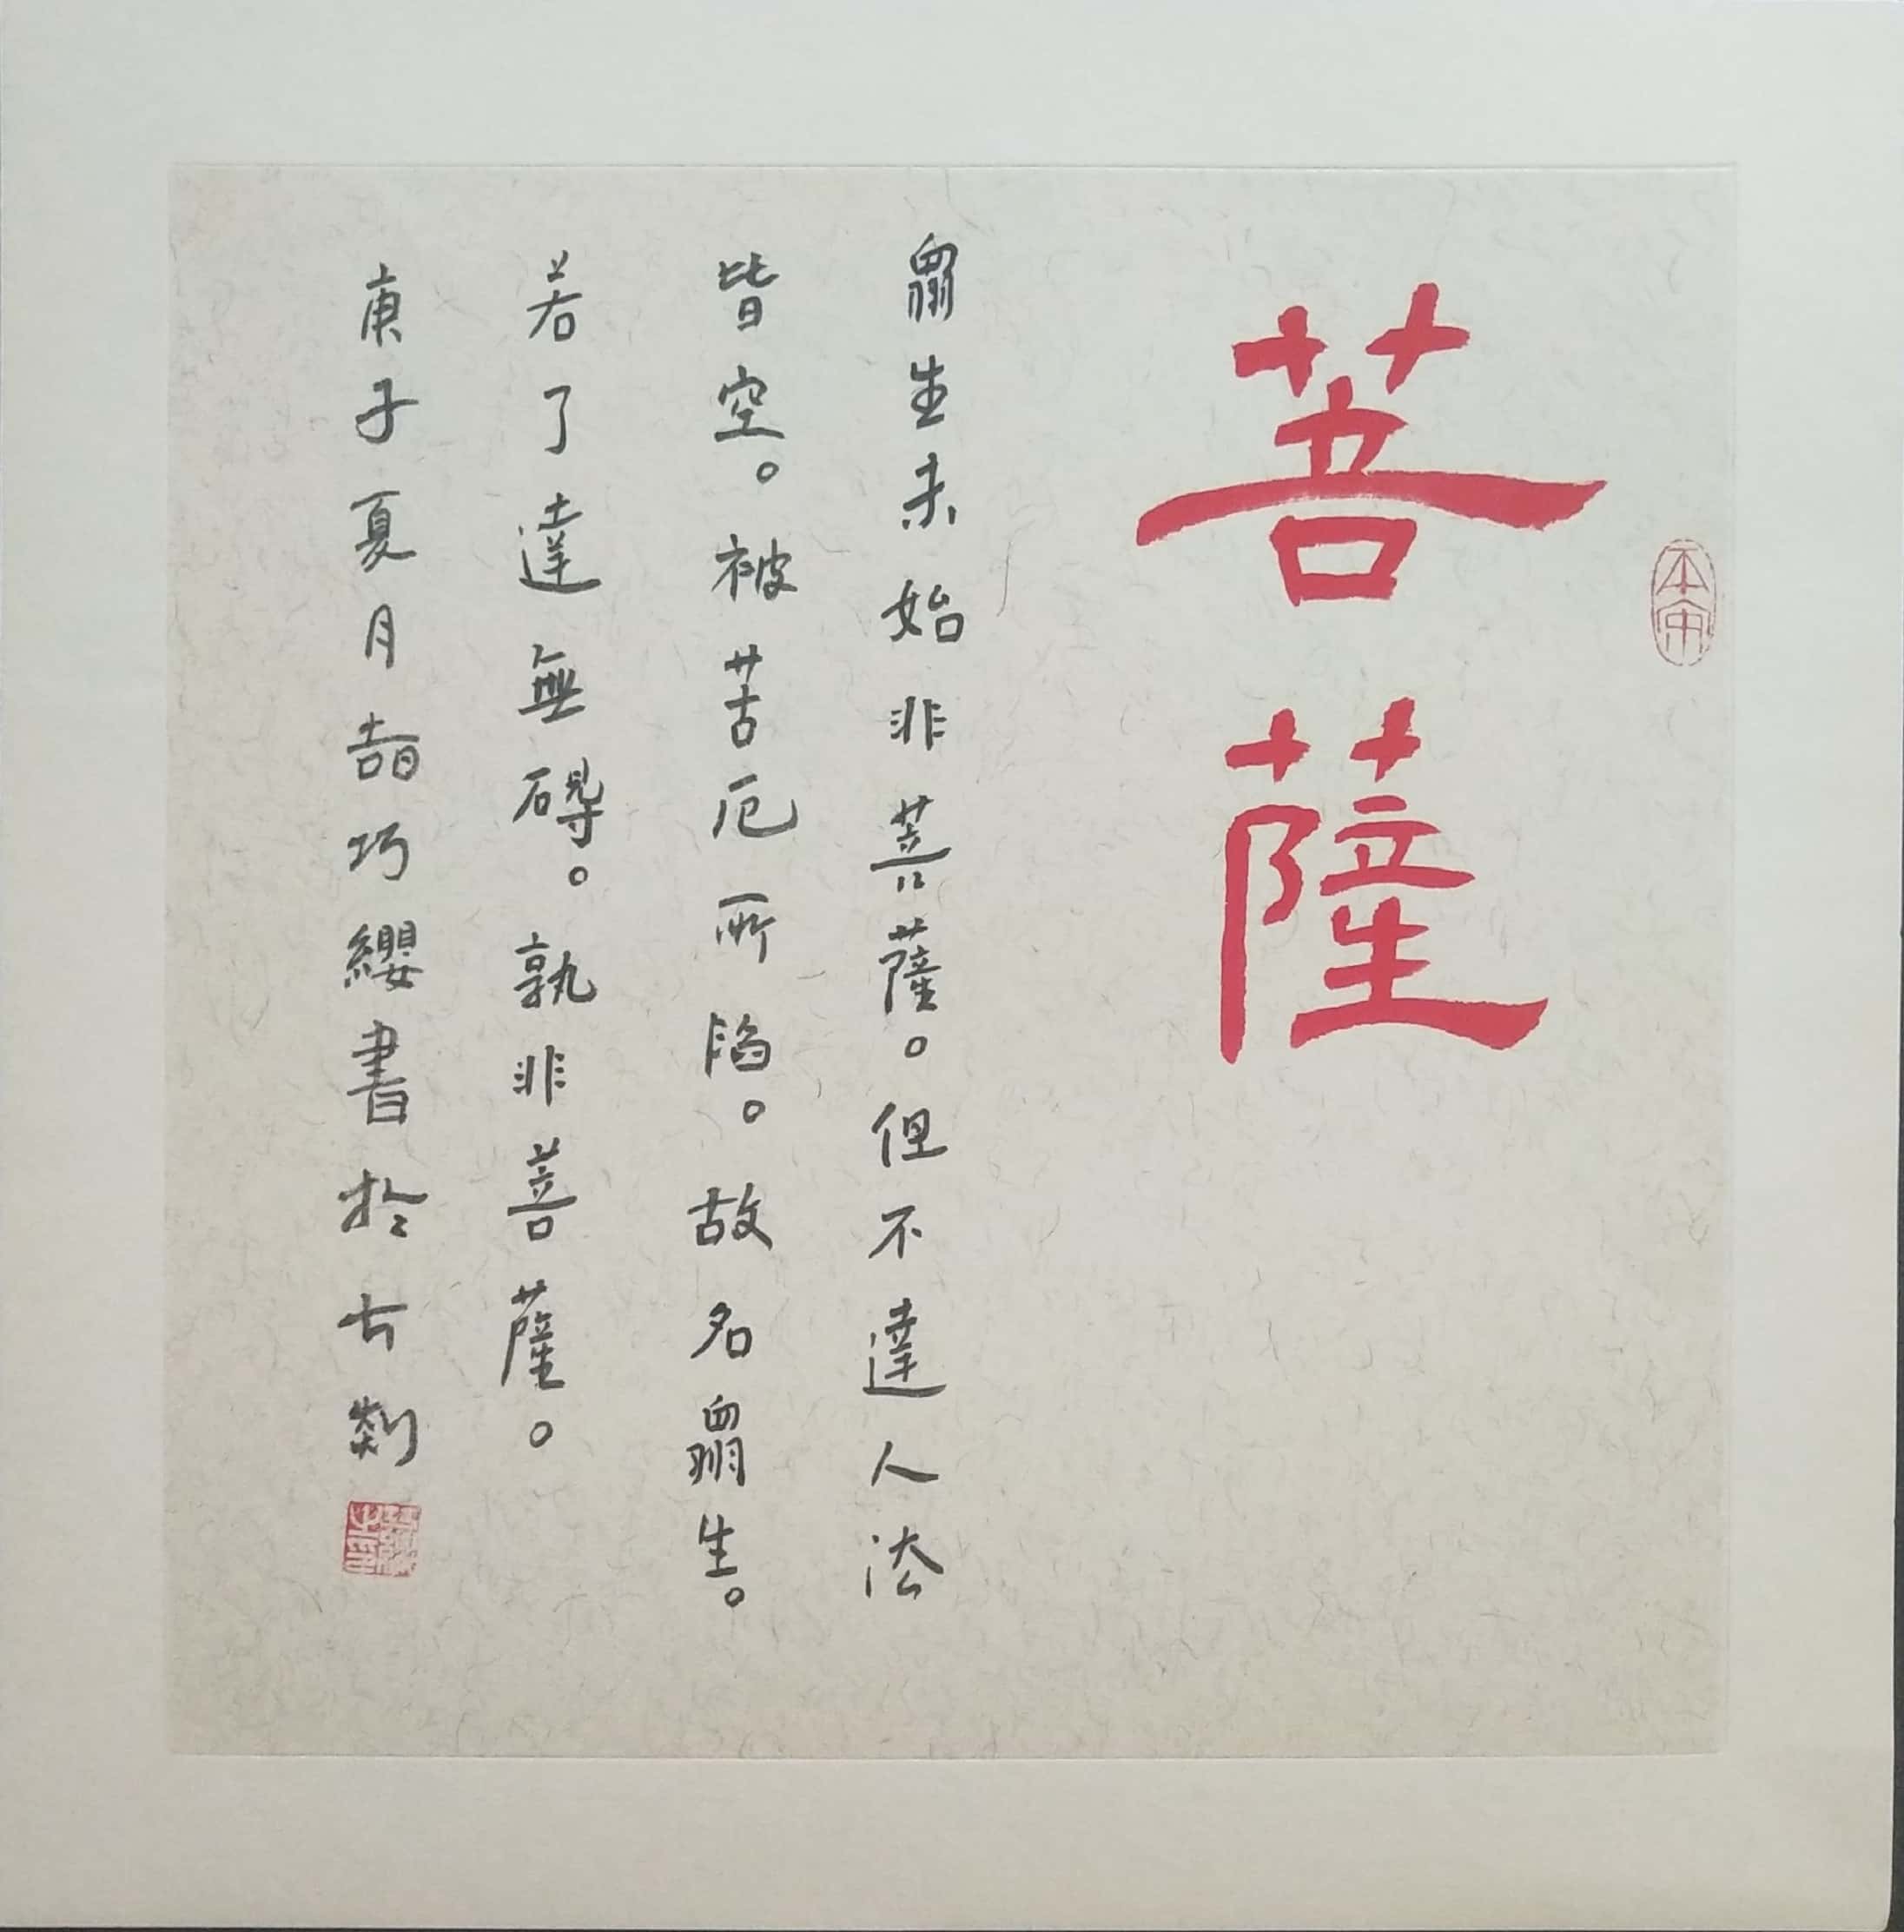 菩薩
眾生未始非菩薩。但不達人法
皆空。被苦厄所陷。故名眾生。
若了達無碍。孰非菩薩。
庚子夏月巧纓書於古剡